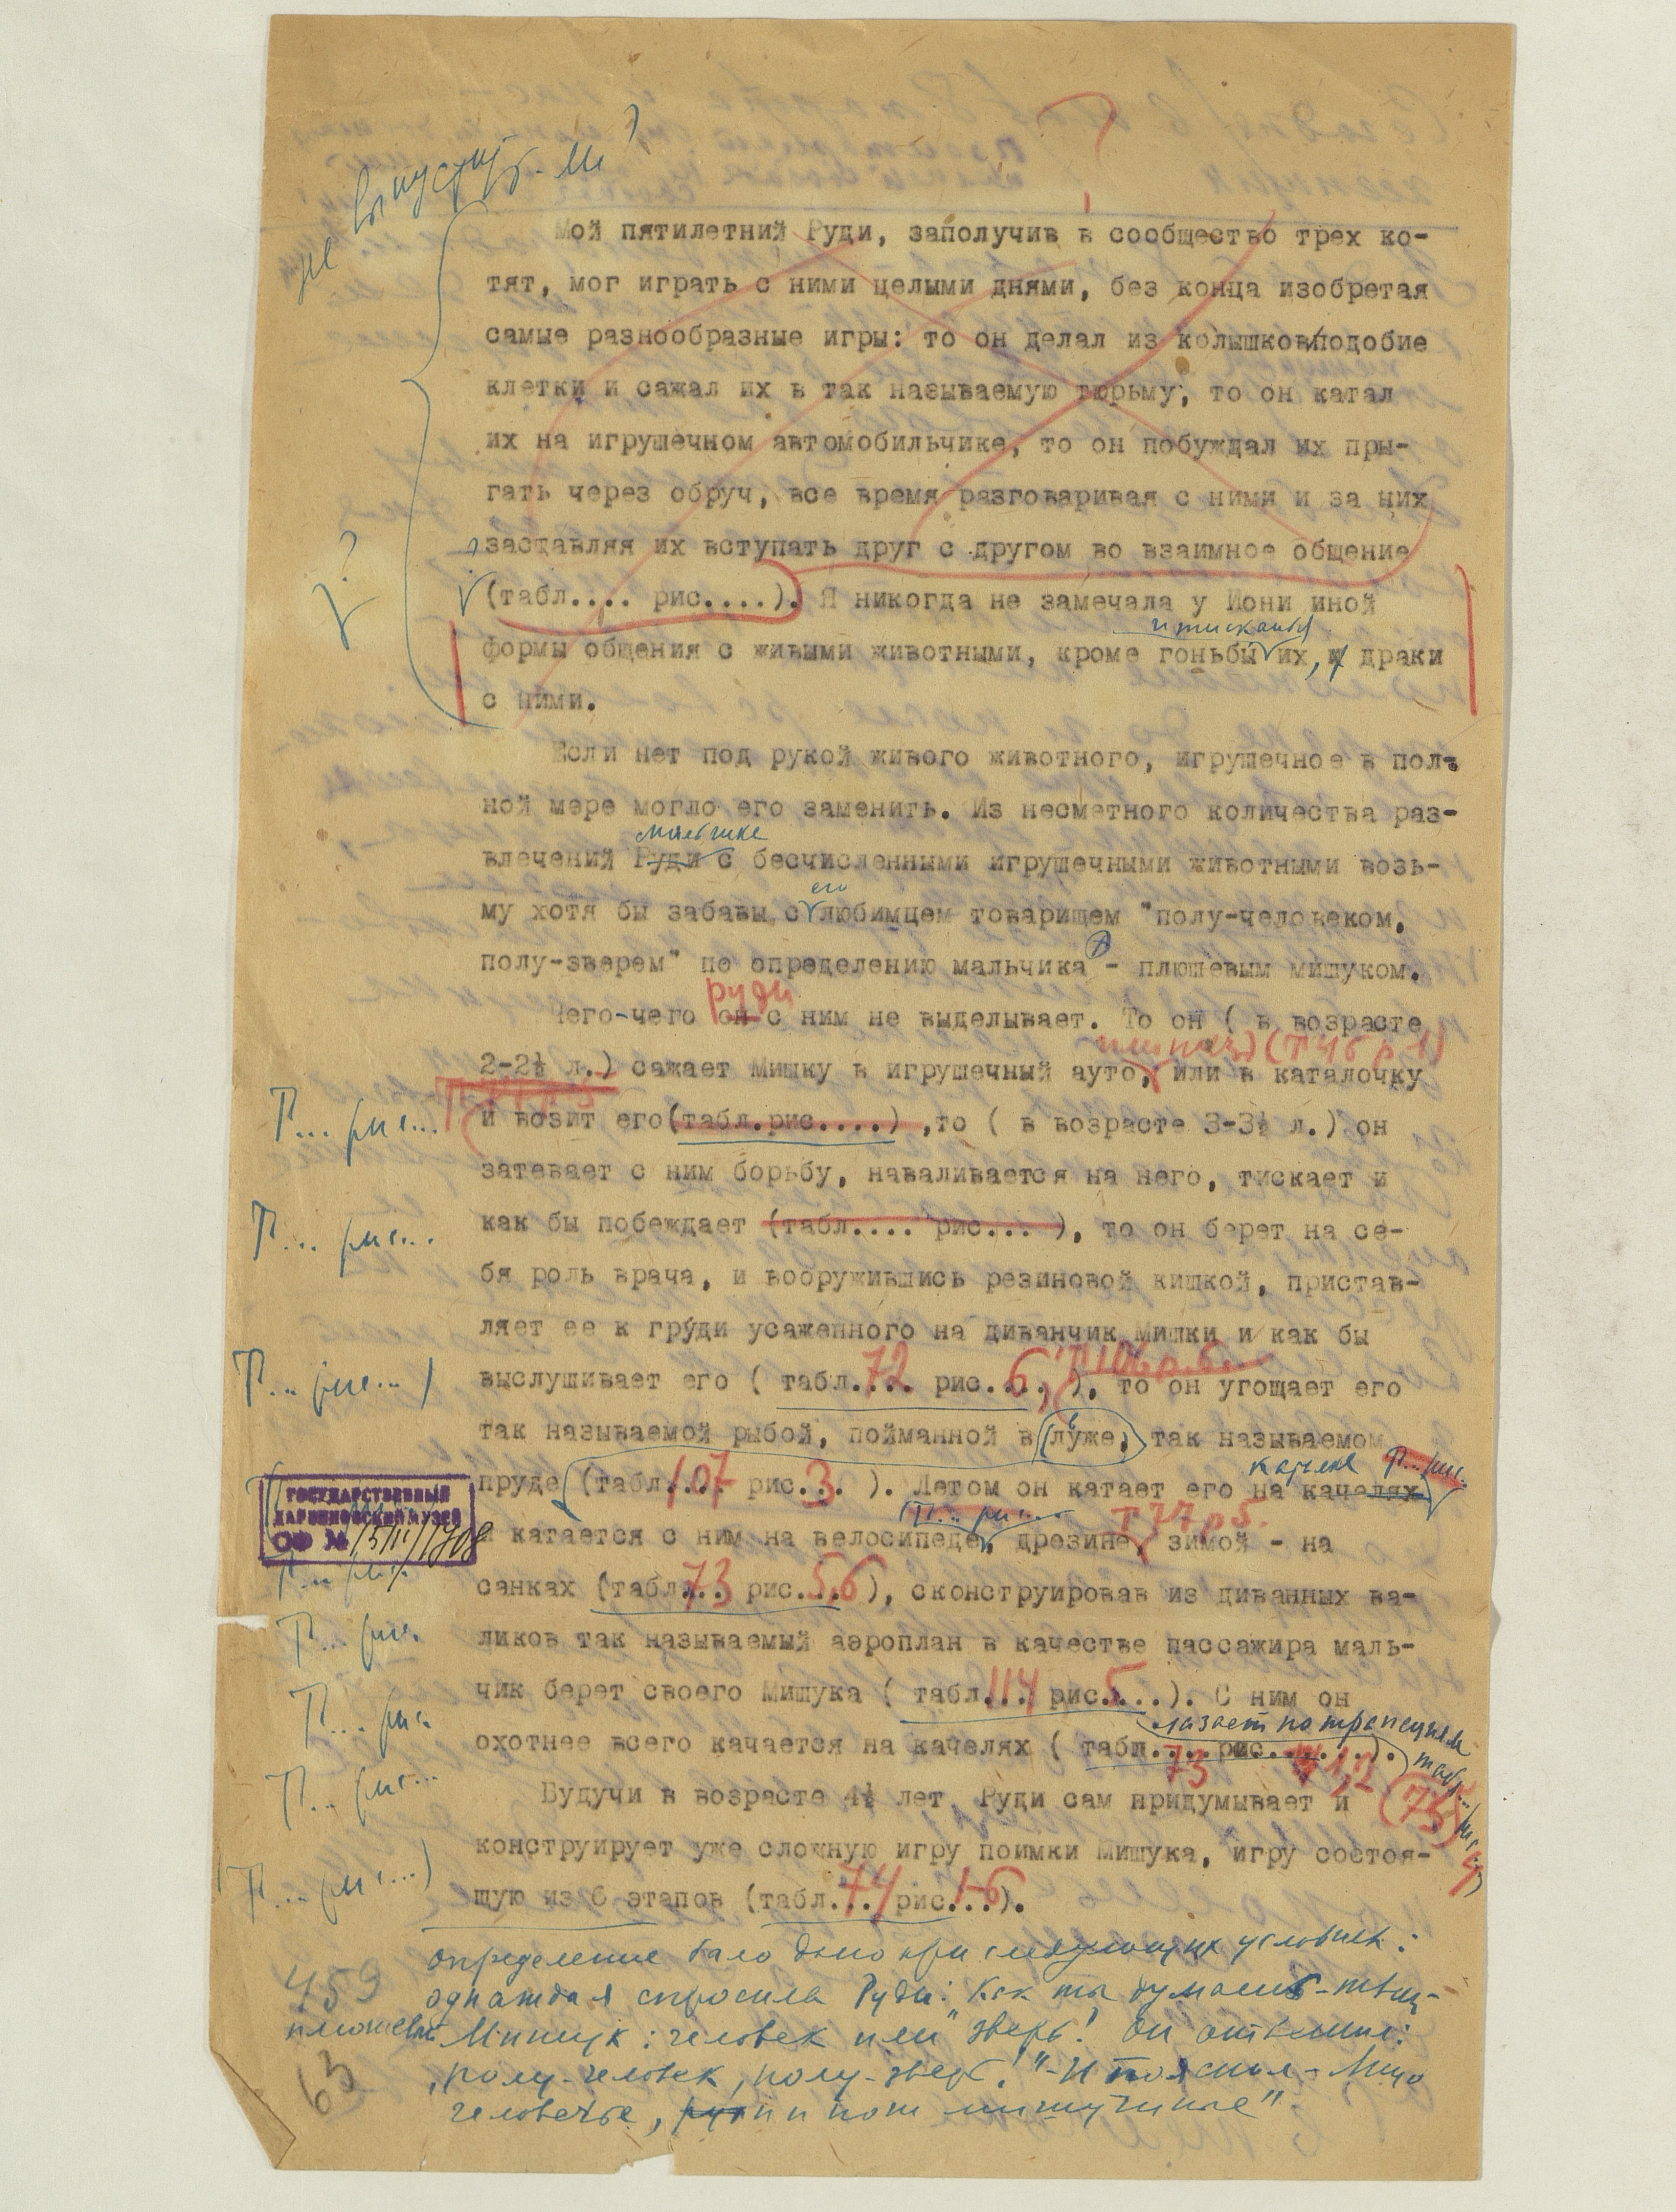 не выпустить ли?
Мой пятилетний Руди, заполучив в сообщество трех ко-
тят, мог играть с ними целыми днями, без конца изобретая
самые разнообразные игры: то он делал из колышков подобие
клетки и сажал их в так называемую тюрьму, то он катал
их на игрушечном автомобильчике, то он побуждал их пры-
гать через обруч, все время разговаривая с ними и за них
?
заставляя их вступать друг с другом во взаимное общение
(табл.... рис....). Я никогда не замечала у Иони иной
и тисканья
формы общения с живыми животными, кроме гоньбы их, и драки
с ними.
Если нет под рукой живого животного, игрушечное в пол-
ной мере могло его заменить. Из несметного количества раз-
мальчике
влечений Руди с бесчисленными игрушечными животными возь-
его
му хотя бы забавы с любимцем товарищем "полу-человеком,
полу-зверем" по определению мальчика - плюшевым мишуком.
Руди
Чего-чего он с ним не выделывает. То он ( в возрасте
(Т 46 р 1)
2-2½ л.) сажает Мишку в игрушечный ауто, или в каталочку
Т... рис...
и возит его(табл.рис....) ,то ( в возрасте 3-3½ л.) он
затевает с ним борьбу, наваливается на него, тискает и
Т... рис...
как бы побеждает (табл.... рис... ), то он берет на се-
бя роль врача, и вооружившись резиновой кишкой, пристав-
ляет ее к груди усаженного на диванчик Мишки и как бы
Т... рис...)
выслушивает его ( табл.72 рис.6, Т 106 р.6 ), то он угощает его
так называемой рыбой, пойманной в луже, в так называемом
качелке Т... рис.
пруде (табл.107 рис.3 ). Летом он катает его на качелях
(Т... рис... Т 77 р 5.
ГОСУДАРСТВЕННЫЙ
ДАРВИНОВСКИЙ МУЗЕЙ
ОФ №
и катается с ним на велосипеде, дрезине, зимой - на
Т... рис.
санках (табл.73 рис.5.6 ), сконструировав из диванных ва-
Т... рис.
ликов так называемый аэроплан в качестве пассажира маль-
Т... рис.
чик берет своего Мишука ( табл.114 рис.5...). С ним он
лазает по трапециям табл... рис.
охотнее всего качается на качелях ( табл.... рис.......).
73 1,2 (75)
Т... рис...
Будучи в возрасте 4½ лет Руди сам придумывает и
конструирует уже сложную игру поимки Мишука, игру состоя-
(Т... рис...)
щую из 6 этапов (табл.74 рис.1-6).
определение было дано при следующих условиях:
459
однажды я спросила Руди: Как ты думаешь - твой
плюшевый Мишук: человек или зверь! Он ответил:
63
"полу-человек, полу-зверь!"- И пояснил - Лицо
человечье,